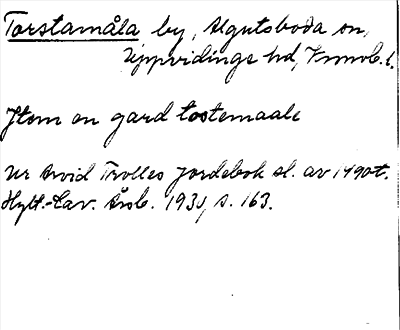 Torstamåla by, Algutsboda sn,
Uppvidinge hd, Kronob. l.
Item en gard tostemaale
Ur Arvid Trolles jordebok sl. av 1490t.
Hylt.-Cav. Årsb. 1931, s. 163.